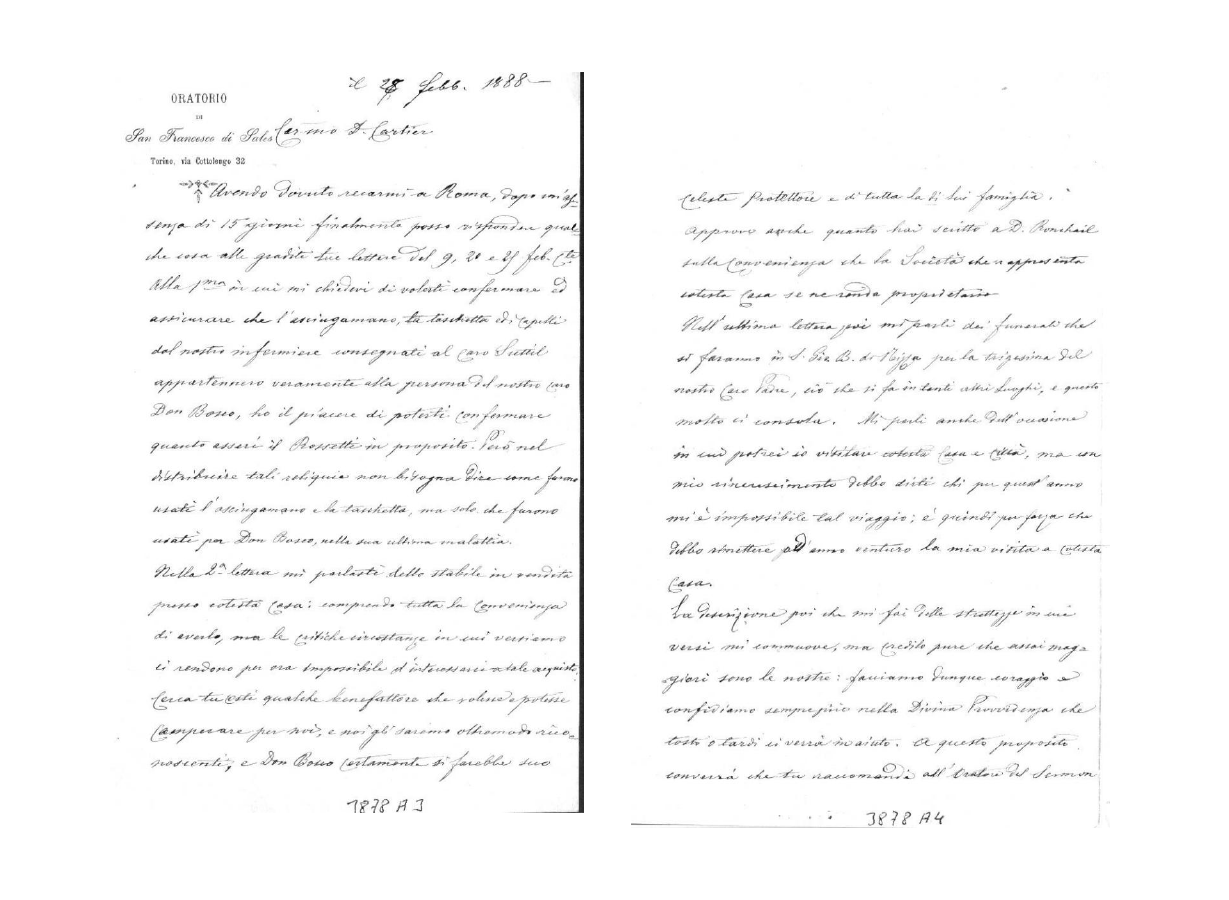 il 28 febb. 1888 —
ORATORIO
DI
San Francesco di Sales
Torino, via Cottolengo 32
Car.mo D. Cartier
Avendo dovuto recarmi a Roma, dopo un'as-
senza di 15 giorni finalmente posso rispondere qual-
che cosa alle gradite tue lettere del 9, 20 e 25 feb. c.te
Alla 1ma in cui mi chiedevi di volerti confermare ed
assicurare che l'asciugamano, la taschetta ed i capelli
dal nostro infermiere consegnati al caro
appartennero veramente alla persona del nostro caro
Don Bosco, ho il piacere di poterti confermare
quanto asserì il Rossetti in proposito. Però nel
distribuire tali reliquie non bisogna dire come furono
usati l'asciugamano e la taschetta, ma solo che furono
usati per Don Bosco, nella sua ultima malattia.
Nella 2a lettera mi parlasti dello stabile in vendita
presso cotesta Casa: comprendo tutta la convenienza
di averlo, ma le critiche circostanze in cui versiamo
ci rendono per ora impossibile d'interessarci a tale acquisto.
Cerca tu costì qualche benefattore che volesse e potesse
comperare per noi, e noi gli saremo oltremodo rico-
noscenti, e Don Bosco certamente si farebbe suo
1878 A 3
celeste Protettore e di tutta la di lui famiglia.
Approvo anche quanto hai scritto a D. Ronchail
sulla convenienza che la Società che rappresenta
cotesta Casa se ne renda proprietario
Nell'ultima lettera poi mi parli dei funerali che
si faranno in S. Gio. B. di Nizza per la trigesima del
nostro Caro Padre, ciò che si fa in tanti altri luoghi, e questo
molto ci consola. Mi parli anche dell'occasione
in cui potrei io visitare cotesta Casa e città, ma con
mio rincrescimento debbo dirti chi per quest'anno
mi è impossibile tal viaggio; è quindi per forza che
debbo rimettere all'anno venturo la mia visita a cotesta
Casa.
La descrizione poi che mi fai delle strettezze in cui
versi mi commuove, ma credilo pure che assai mag-
giori sono le nostre: facciamo dunque coraggio e
confidiamo sempre più nella Divina Provvidenza che
tosto o tardi ci verrà in aiuto. A questo proposito
converrà che tu raccomandi all'Oratore del Sermon
3878 A4